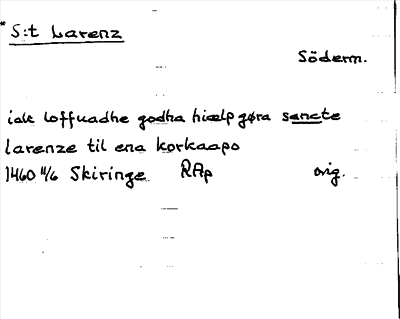 * S:t Larenz
Söderm.
iak loffuadhe godha hiælp gøra sancte
larenze til ena korkaapo
1460 11/6 Skiringe RAp orig.